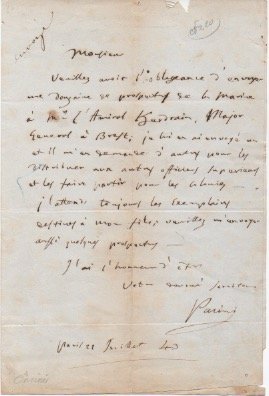 envoyé
Monsieur
Veuillez avoir l'obligeance d'envoyer
une douzaine de prospectus de la marine
à Mr l'Amiral , Major
Général à Brest, je lui en ai envoyé un
et il m'en demande d'autres pour les
distribuer aux autres officiers supérieurs
et les faire partir pour les colonies
j'attends toujours les exemplaires
destinés à mon fils, veuillez m'envoyer
aussi quelques prospectus
J'ai l'honneur d'être
Votre dévoué serviteur
Paris 22 Juillet